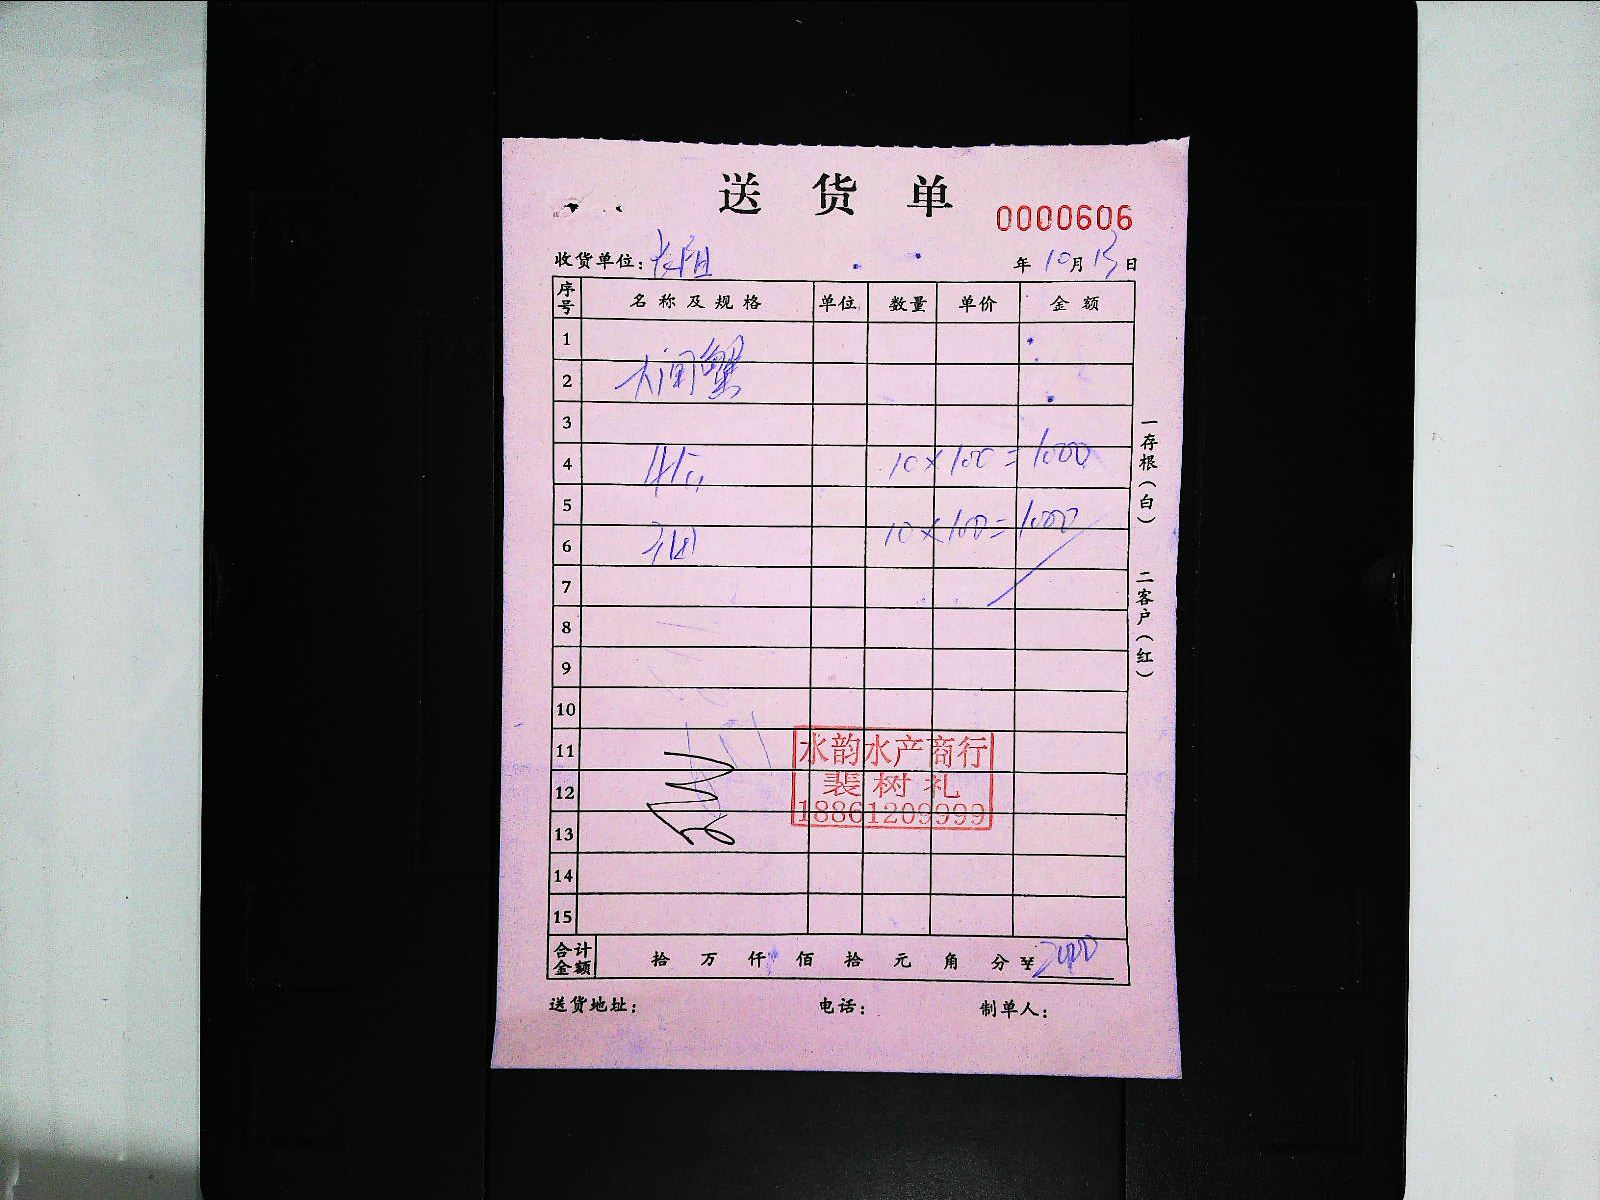 送 货 单
0000606
收货单位：
年 10 月 13 日
序号 名称及规格 单位 数量 单价 金额
1
2 大闸蟹
3
4 10×100=1000
5 10×100=1000
6
7
8
9
10
11
12
13
14
15
水韵水产商行
裴树礼
18861209999
合计金额 拾 万 仟 佰 拾 元 角 分 ¥2000
送货地址： 电话： 制单人：
一存根（白） 二客户（红）